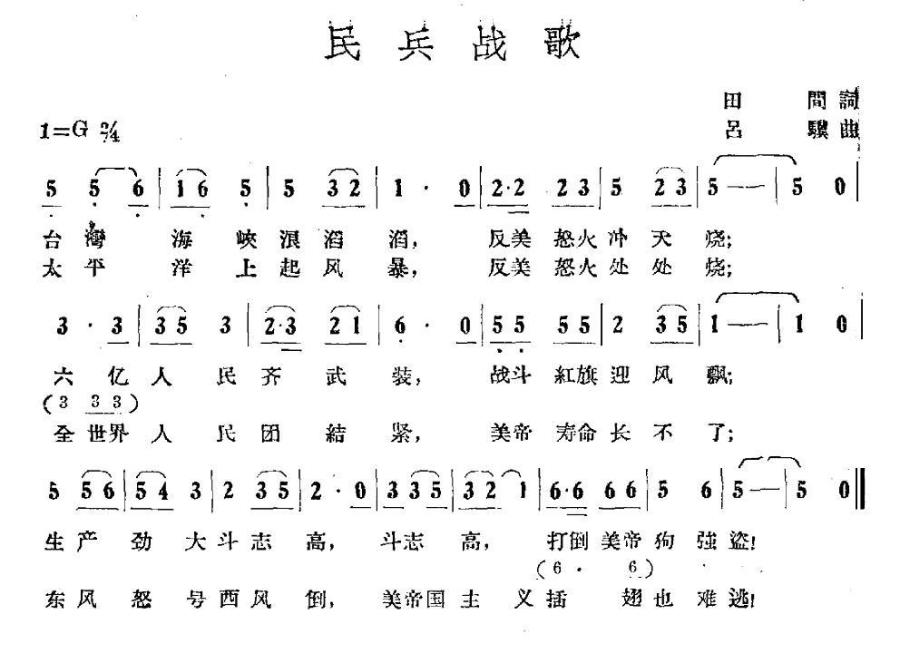 民兵战歌
田間詞
1=G 2/4
呂驥曲
5 5 6 | 1 6 5 | 5 3 2 | 1 · 0 | 2·2 2 3 | 5 2 3 | 5 — | 5 0 |
台灣海峽浪滔滔，反美怒火冲天烧；
太平洋上起风暴，反美怒火处处烧；
3 · 3 | 3 5 3 | 2·3 2 1 | 6 · 0 | 5 5 5 5 | 2 3 5 | 1 — | 1 0 |
六亿人民齐武装，战斗紅旗迎风飘；
(3 3 3)
全世界人民团結紧，美帝寿命长不了；
5 5 6 | 5 4 3 | 2 3 5 | 2 · 0 | 3 3 5 | 3 2 1 | 6·6 6 6 | 5 6 | 5 — | 5 0 ‖
生产劲大斗志高，斗志高，打倒美帝狗強盗！
(6 · 6)
东风怒号西风倒，美帝国主义插翅也难逃！